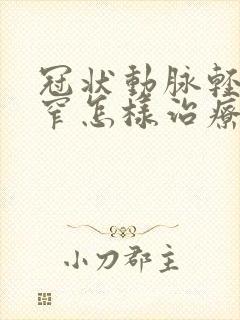 冠状動脉輕
窄怎樣治療
小刀郡主